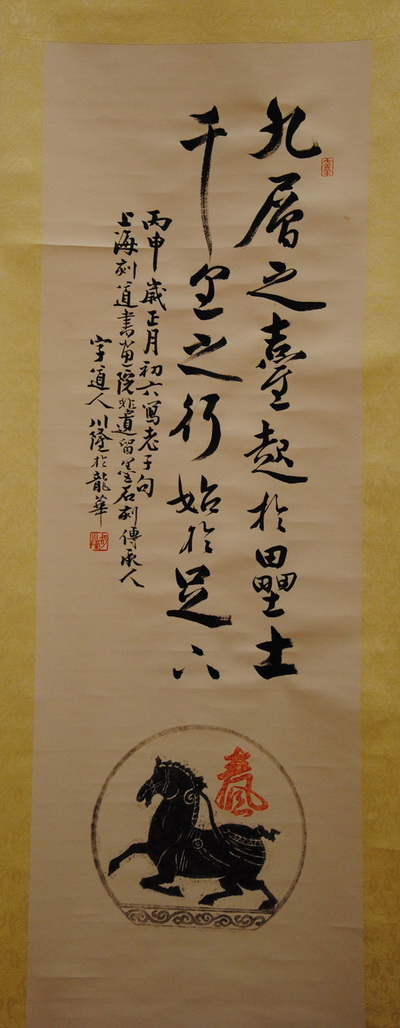 九層之臺起於壘土
千里之行始於足下
丙申歲正月初六寫老子句
上海刻道書畫院非遺留墨石刻傳承人
字道人川隆於龍華